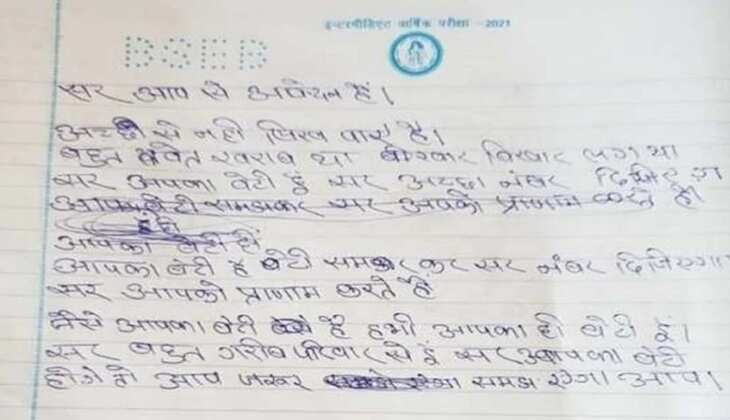 इन्टरमीडिएट वार्षिक परीक्षा -2021
BSEB
सर आप से आवेदन हैं।
अच्छे से नही लिख पाए है।
बहुत खराब था लग था
सर आपका बेटी हूँ सर अच्छा नंबर दिजिए
आपका बेटी समझकर सर आपको प्राणाम करते हैं।
आपका बेटी हैं
आपका बेटी है बेटी समझ कर सर नंबर दिजिएगा
सर आपको प्राणाम करते हैं
जैसे आपका बेटी है हमी आपका ही बेटी हूँ।
सर बहुत गरीब परिवार से हूँ सर आपका बेटी
होगे तो आप जरूर समझ आप।